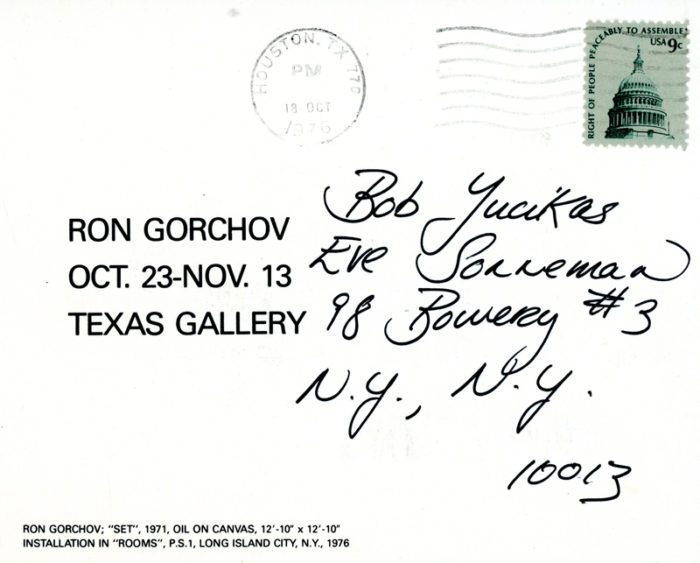 HOUSTON, TX 770
PM
18 OCT
1976
RIGHT OF PEOPLE PEACEABLY TO ASSEMBLE
USA 9c
RON GORCHOV
OCT. 23-NOV. 13
TEXAS GALLERY
Bob Yucikas
Eve Sonneman
98 Bowery #3
N.Y., N.Y.
10013
RON GORCHOV; "SET", 1971, OIL ON CANVAS, 12'-10" x 12'-10"
INSTALLATION IN "ROOMS", P.S.1, LONG ISLAND CITY, N.Y., 1976